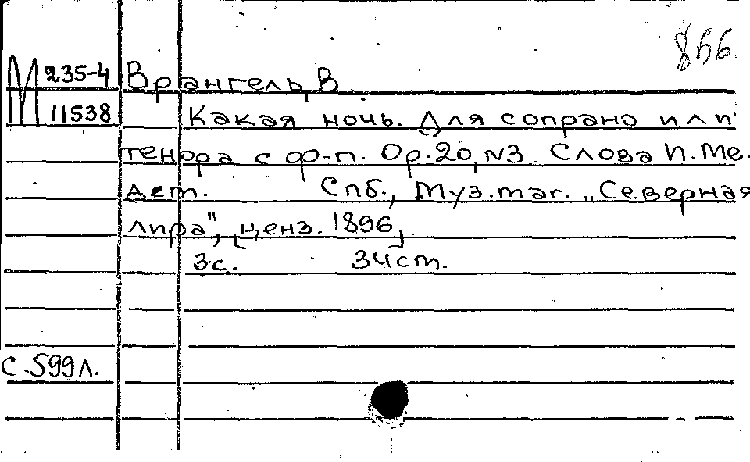 866
М 235-4 Врангель, В
11538 Какая ночь. Для сопрано или
тенора с ф-п. Op.20, N3. Слова П. Ме.
дет. Спб., Муз.маг. „Северная
лира", [ценз. 1896]
3с. 34см.
С 599л.